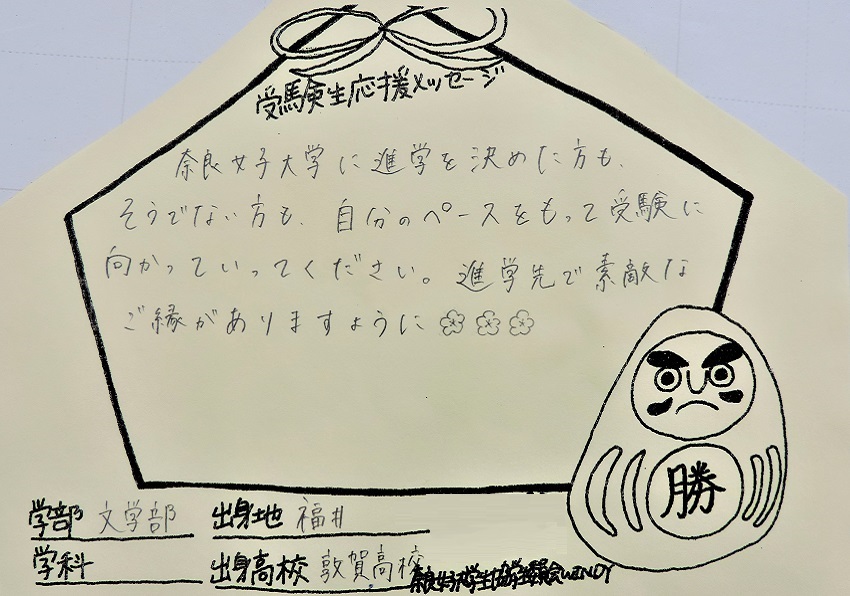 受験生応援メッセージ
奈良女子大学に進学を決めた方も、
そうでない方も、自分のペースをもって受験に
向かっていってください。進学先で素敵な
ご縁がありますように
勝
学部 文学部 出身地 福井
学科 出身高校 敦賀高校
奈良女子大学生協学生委員会WENDY